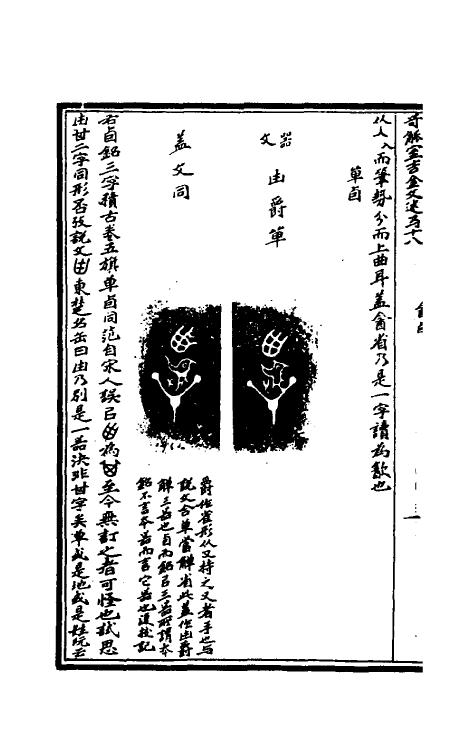 奇觚室吉金文述卷十八
从人入而筆勢分而上曲耳蓋龠省乃是一字讀為歙也
單卣
器文
由爵單
蓋文同
爵作雀形从又持之又者手也与
說文合單當觶省此蓋作由爵
觶三器也卣而銘曰三器所謂本
銘不言本器而言它器也復攷記
右卣銘三字積古卷五旗單卣同范自宋人誤㠯為至今無訂之者可怪也試思
由甘二字同形否攷說文東楚名缶曰由乃別是一器決非甘字矣單或是地或是姓阮云